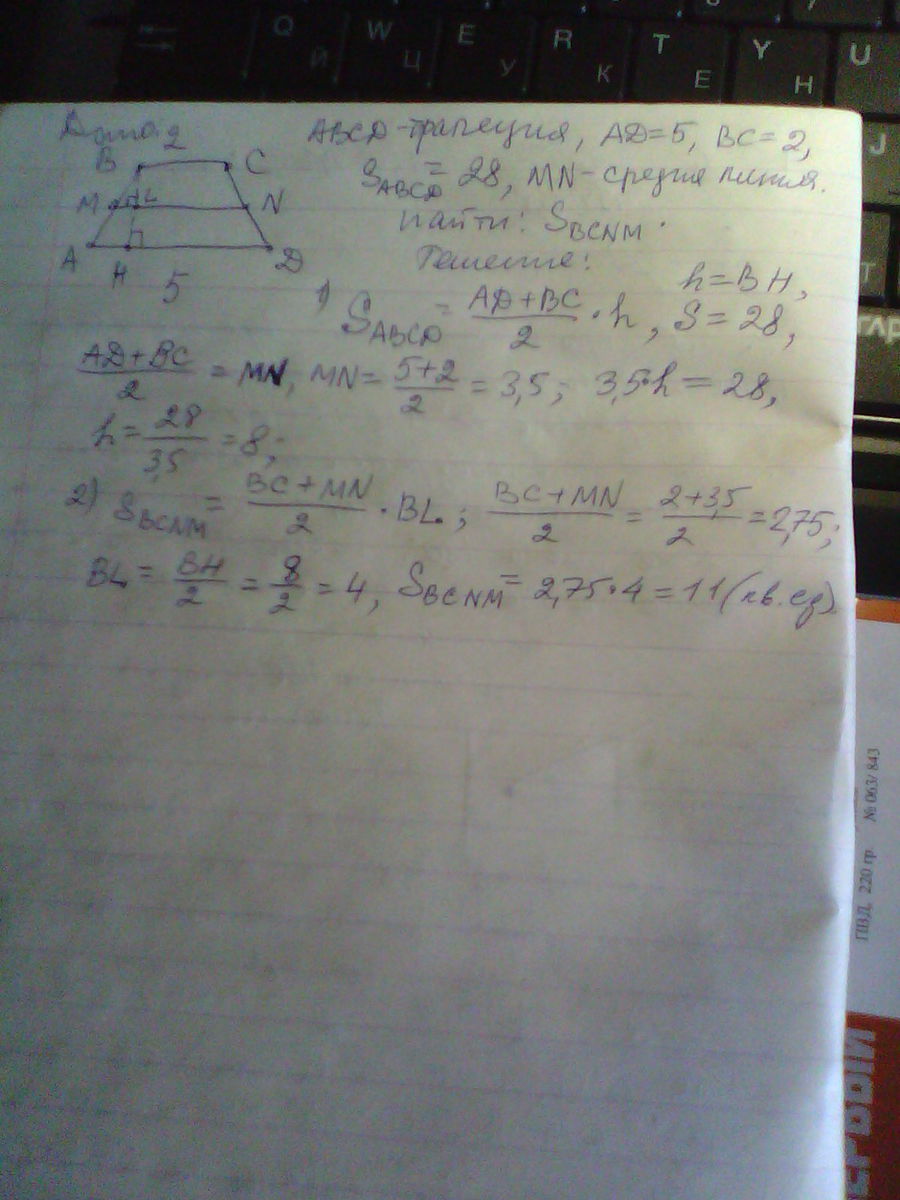 Q W E R T Y U
Й Ц У К Е Н
J
Дано:
ABCD-трапеция, AD=5, BC=2,
S_ABCD = 28, MN-средняя линия.
Найти: S_BCNM.
Решение:
2
B C
M L N
A H D
5
h=BH,
1) S_ABCD = (AD+BC)/2 · h, S=28,
(AD+BC)/2 = MN, MN = (5+2)/2 = 3,5; 3,5·h = 28,
h = 28/3,5 = 8;
2) S_BCNM = (BC+MN)/2 · BL; (BC+MN)/2 = (2+3,5)/2 = 2,75;
BL = BH/2 = 8/2 = 4, S_BCNM = 2,75·4 = 11 (кв.ед)
ПВД, 220 гр. № 063/ 843